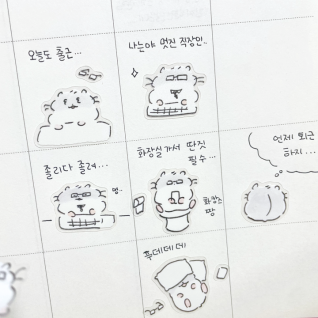 오늘도 출근...
나는야 멋진 직장인..
졸리다 졸려...
멍..
화장실가서 딴짓
필수...
화장실
짱
언제 퇴근
하지...
푸데데데